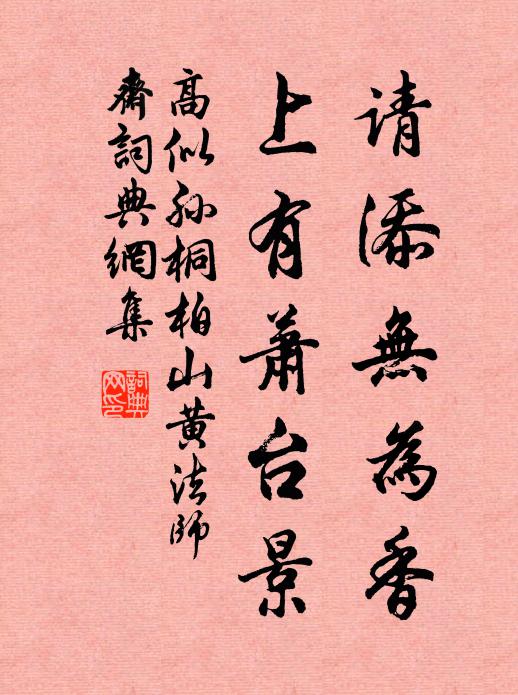 请添無為香
上有蕭台景
高似孙桐柏山黄法師
齋詞典網集
詞典网印